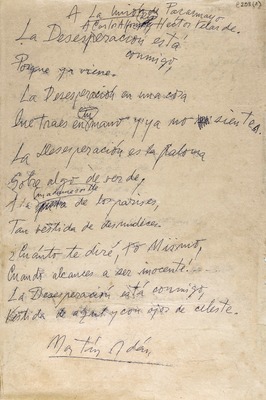 A La
Pacasmayo
Héctor Velarde.
(203(1)
La Desesperación está
conmigo,
Porque ya viene.
La Desesperación en una cosa
Que traes en tu mano y ya no sientes.
La Desesperación es la Paloma
Sobre algo de verde.
A la de los países,
Tan vestida de desnudeces.
¿Cuánto te diré, Yo Mismo,
Cuando alcances a ser inocente!
La Desesperación está conmigo,
Vestida de azul y con ojos de celeste.
Martín Adán